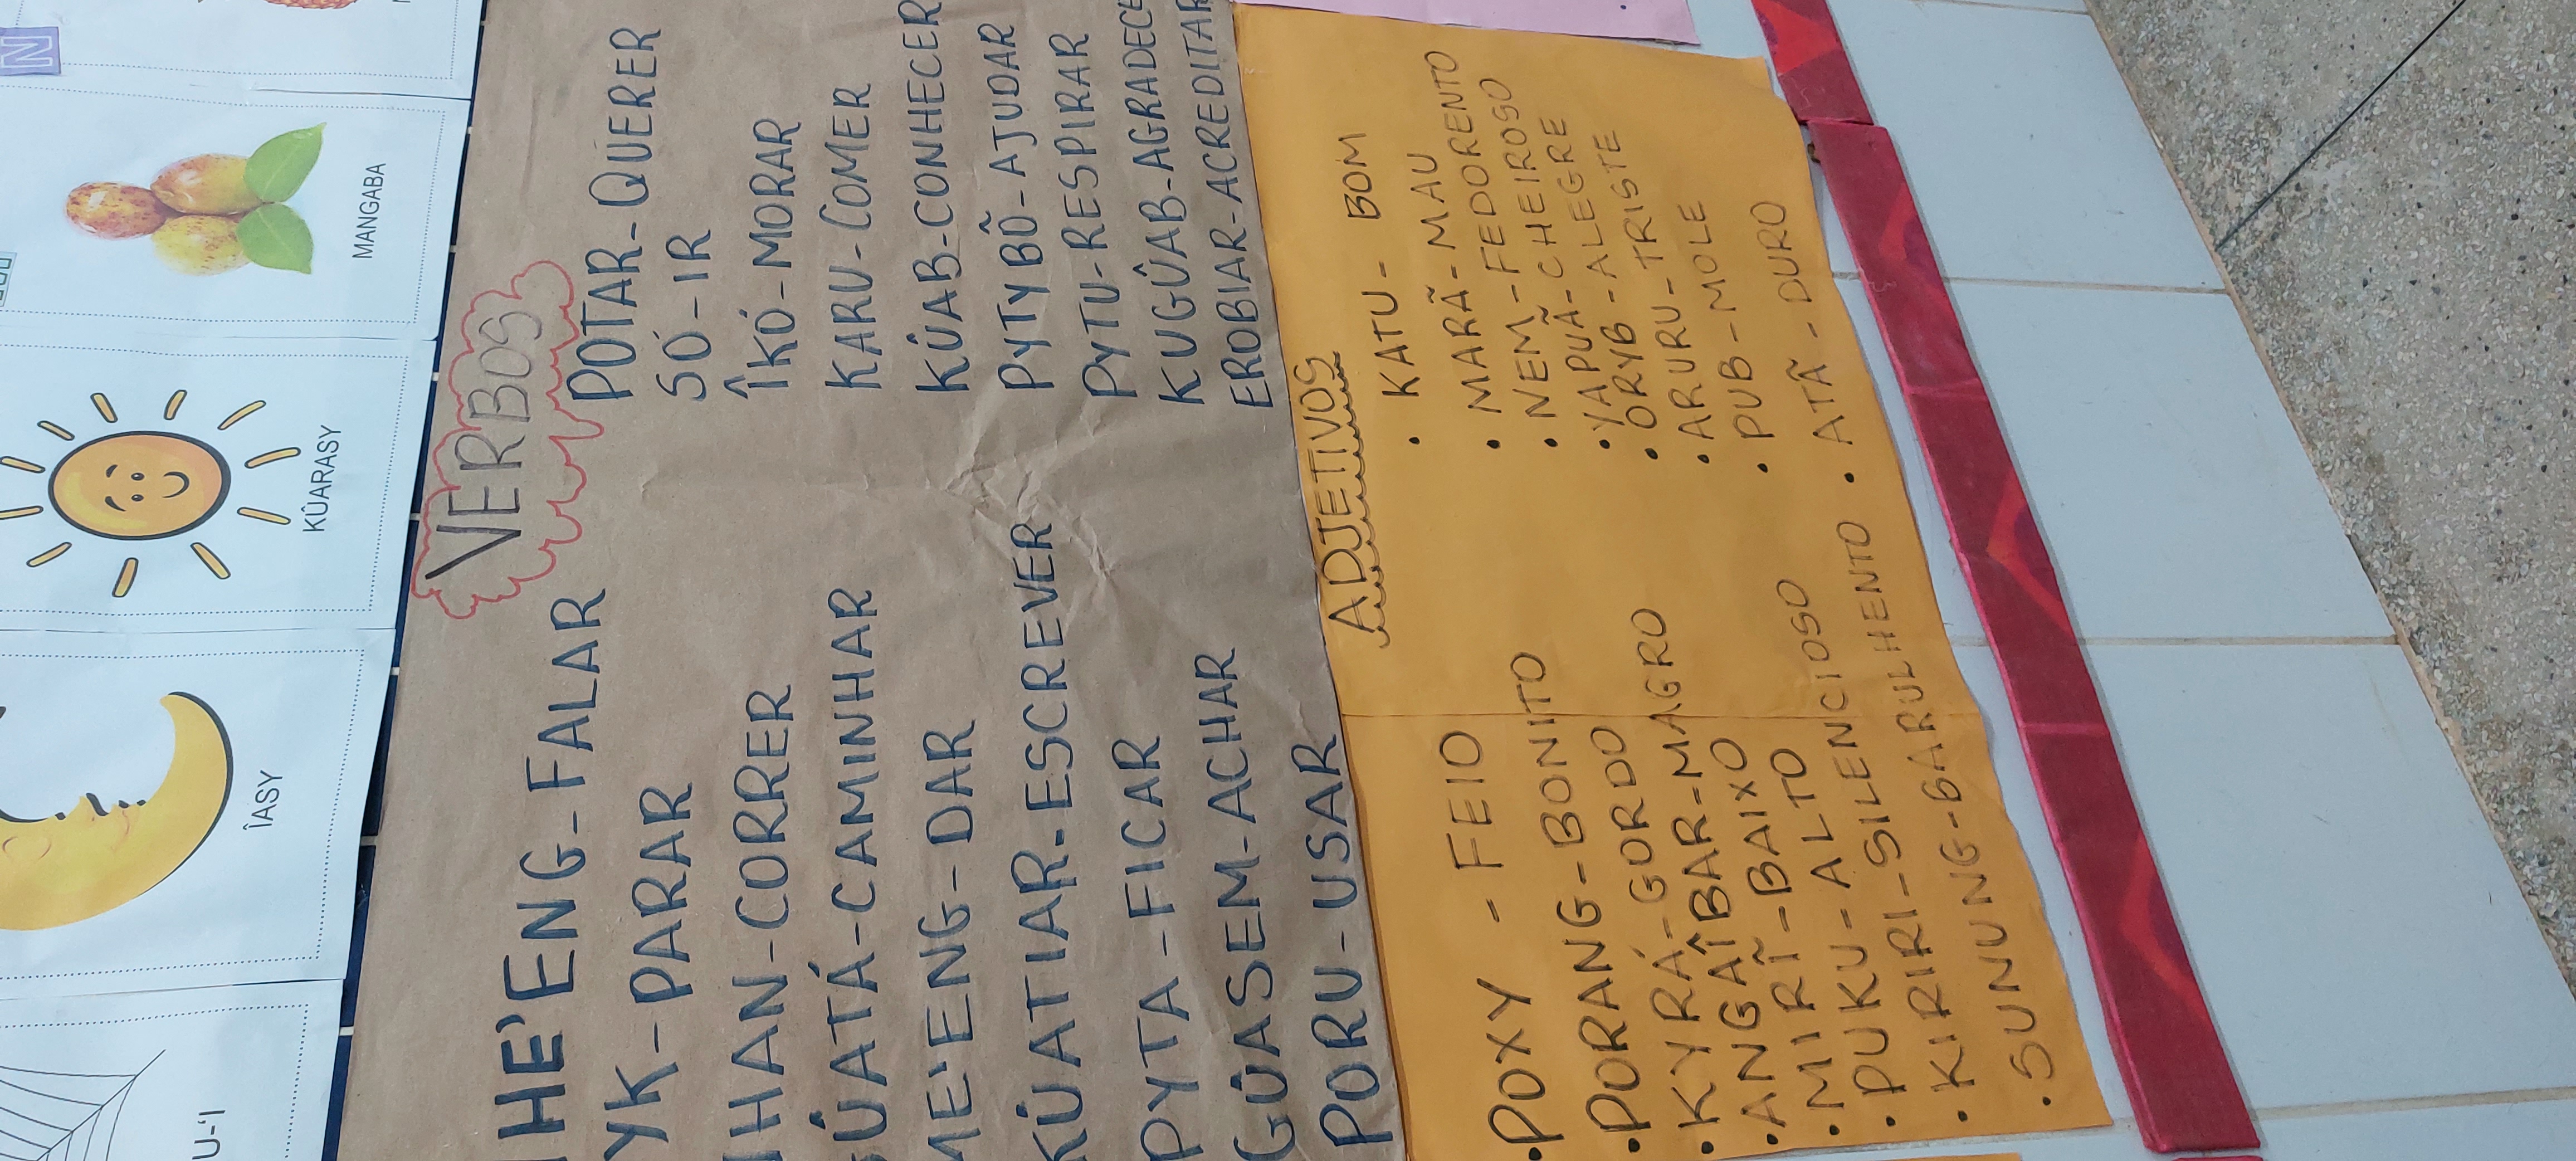 U-'I
ÎASY
KÛARASY
MANGABA
N
VERBOS
HE'ENG- FALAR
YK - PARAR
HAN-CORRER
ÛATÁ-CAMINHAR
ME'ENG- DAR
KÛATIAR-ESCREVER
PYTA -FICAR
GÛASEM-ACHAR
PORU-USAR
POTAR-QUERER
SÓ-IR
ÎKÓ-MORAR
KARU-COMER
KÛAB-CONHECER
PYTYBÕ-AJUDAR
PYTU-RESPIRAR
KUGÛAB-AGRADECE
EROBIAR-ACREDITAR
ADJETIVOS
•POXY - FEIO
•PORANG-BONITO
•KYRÁ-GORDO
•ANGAÎBAR-MAGRO
•MIRĨ-BAIXO
•PUKU-ALTO
•KIRIRI-SILENCIOSO
•SUNUNG-BARULHENTO
• KATU- BOM
• MARÃ-MAU
• NEM-FEDORENTO
•YAPUÃ-CHEIROSO
•ORYB-ALEGRE
•ARURU-TRISTE
• PUB-MOLE
• ATÃ - DURO